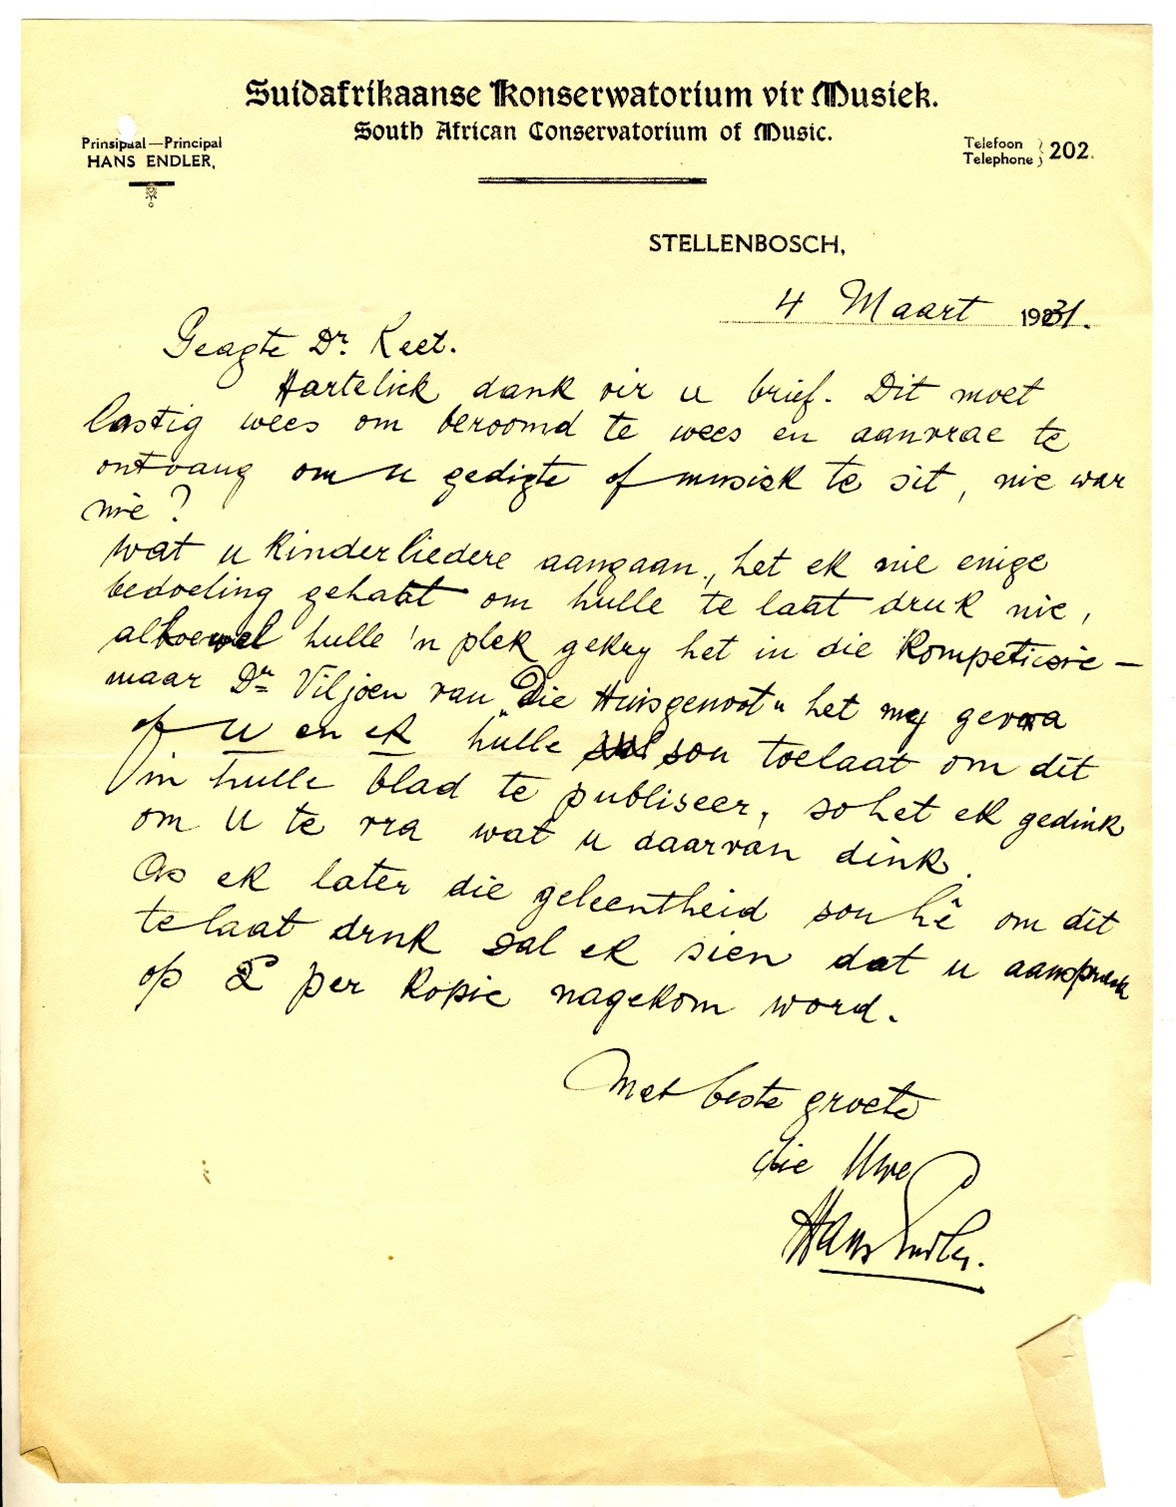 Suidafrikaanse Konserwatorium vir Musiek.
South African Conservatorium of Music.
Prinsipaal—Principal
HANS ENDLER,
Telefoon
Telephone } 202.
STELLENBOSCH,
4 Maart 1931.
Geagte Dr. Keet.
Hartelick dank vir u brief. Dit moet
lastig wees om beroomd te wees en aanvrae te
ontvang om u gedigte of musiek te sit, nie war
nie?
Wat u Kinderliedere aangaan, het ek nie enige
bedoeling gehabt om hulle te laat druk nie,
alhoewel hulle 'n plek gekry het in die Kompetisie —
maar Dr. Viljoen van "Die Huisgenoot" het my gevra
of U en ek hulle sou toelaat om dit
in hulle blad te publiseer, so het ek gedink
om U te vra wat u daarvan dink.
As ek later die geleentheid sou hê om dit
te laat druk sal ek sien dat u aanspraak
op per kopie nagekom word.
Met beste groete
die Uwe
Hans Endler.